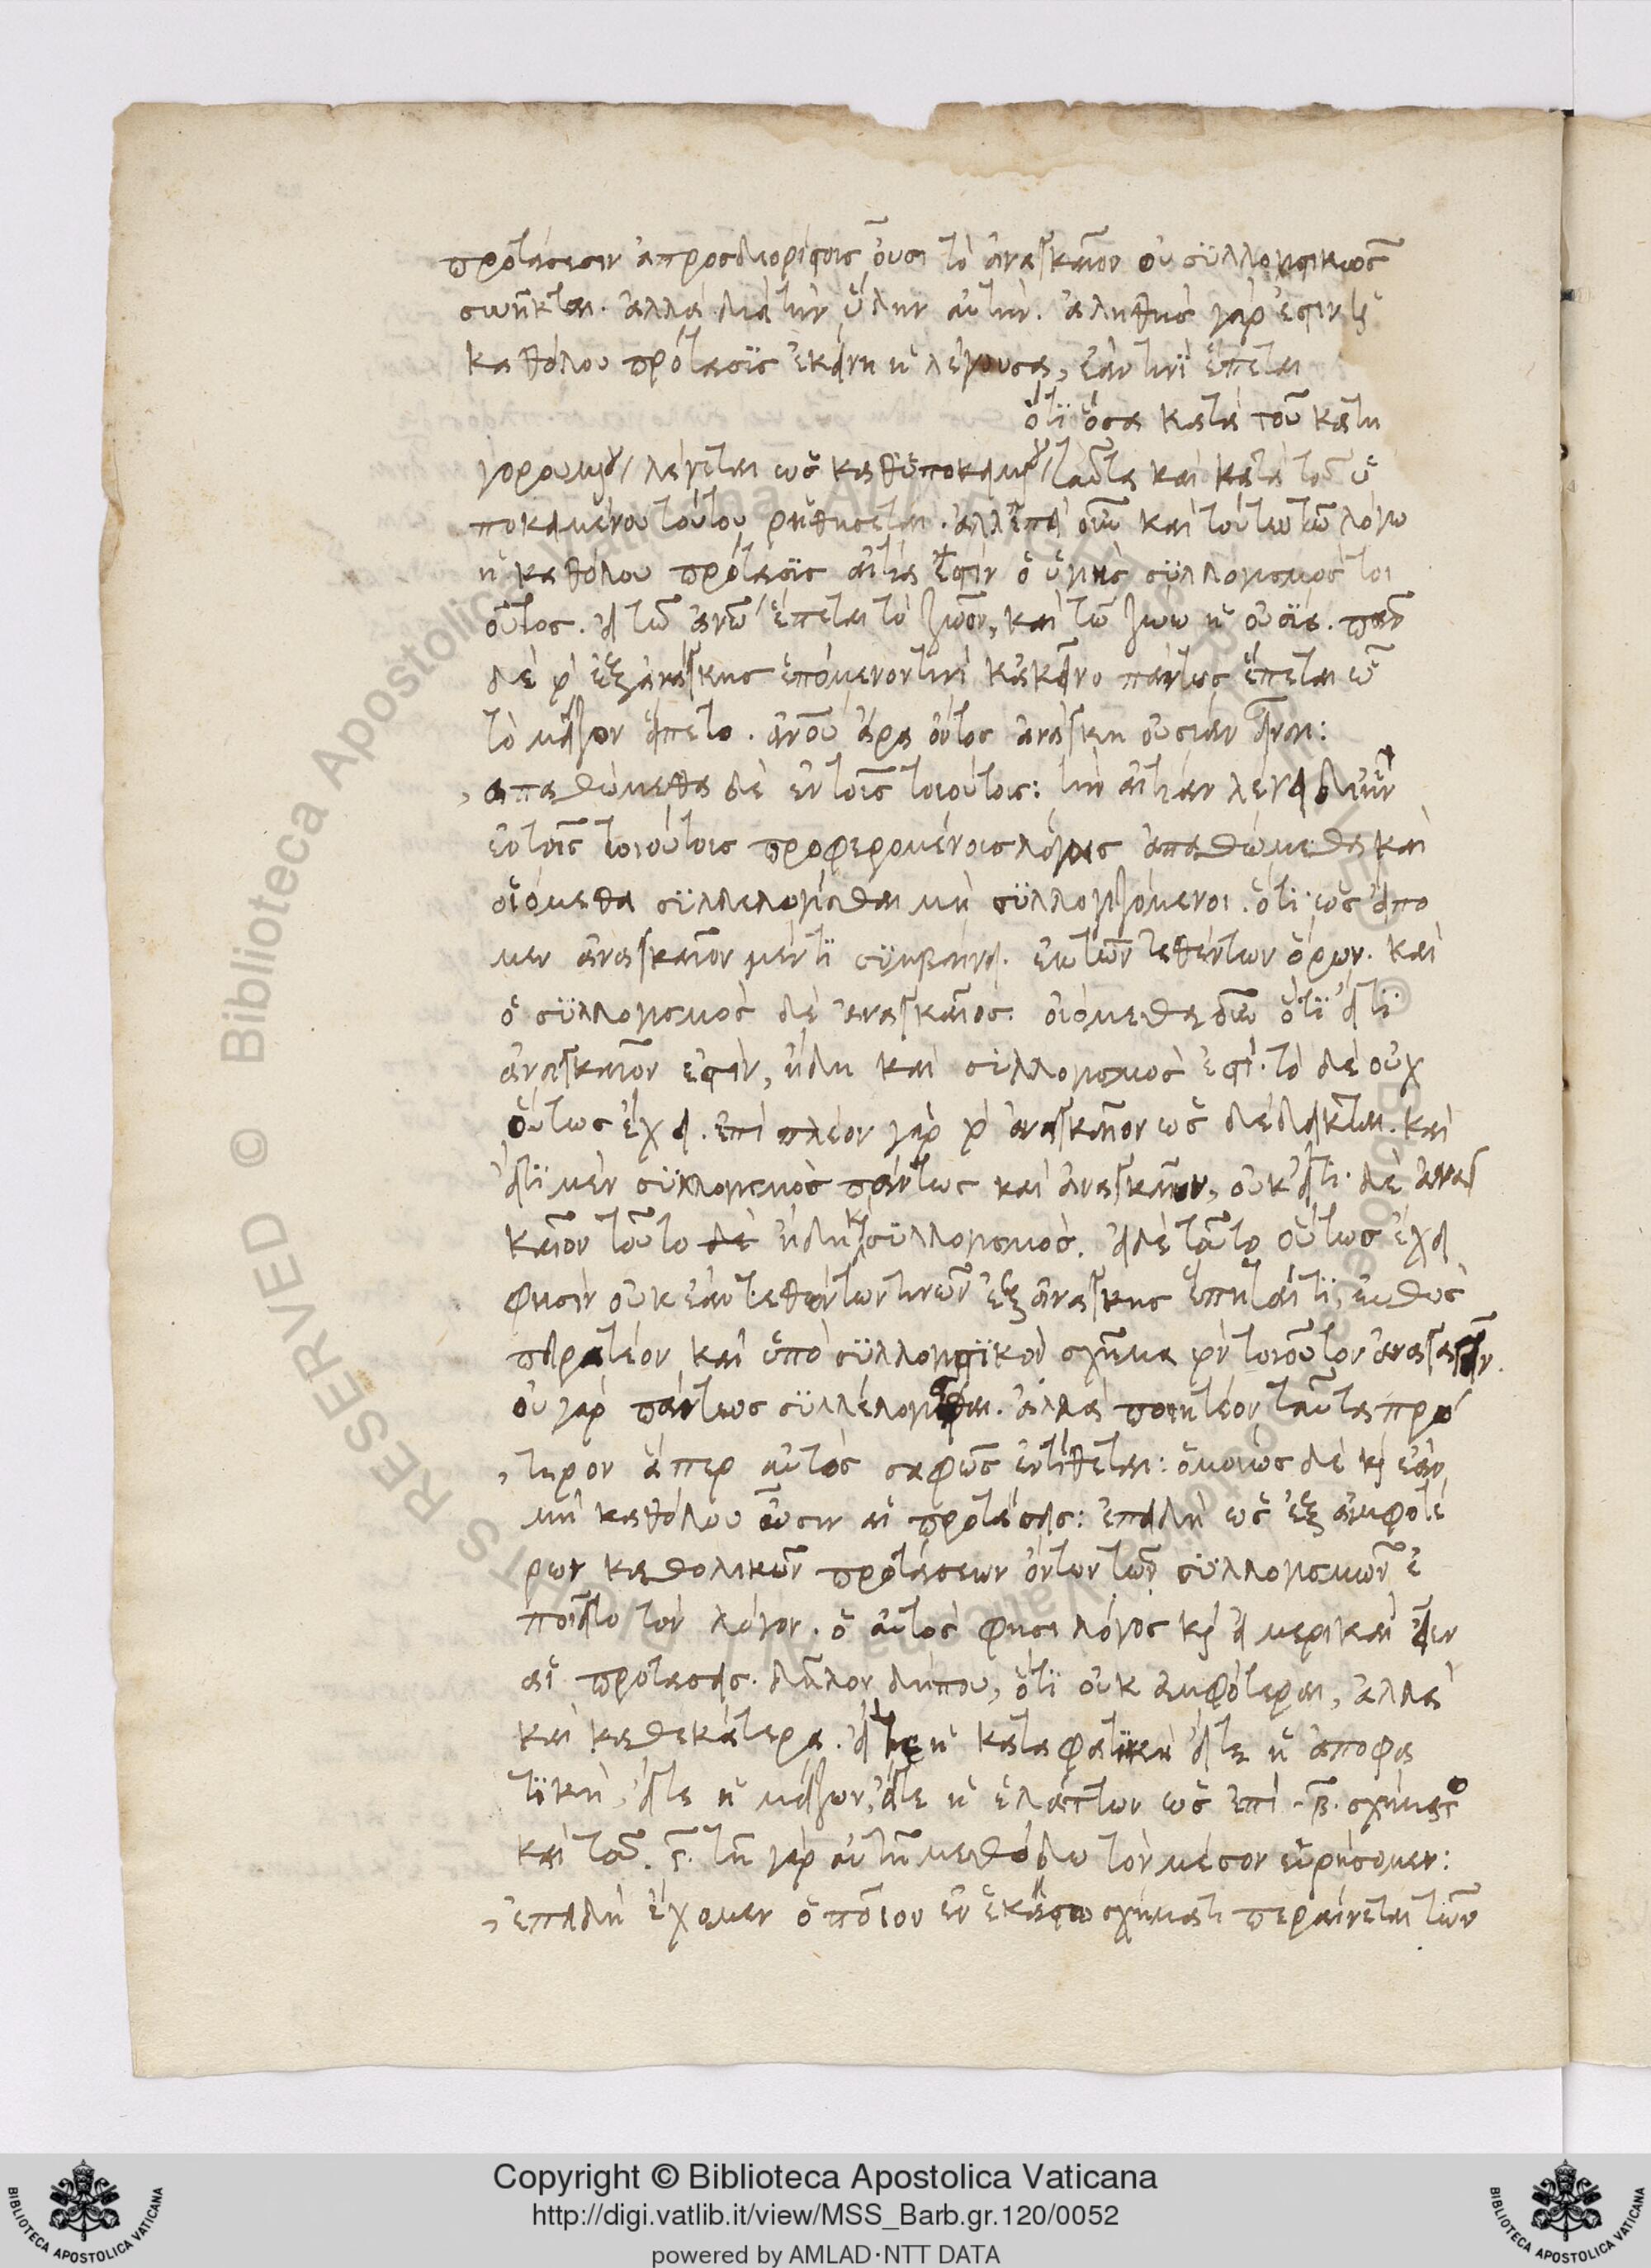 προτάσεσιν ἀπροσδιορίστοις οὔσι τὸ ἀναγκαῖον οὐ συλλογιστικῶς
συνῆκται. ἀλλὰ διὰ τὴν ὕλην αὐτήν. ἀληθὴς γάρ ἐστιν ἡ
καθόλου πρότασις ἐκείνη ἡ λέγουσα, ἐάν τινι ἕπεται
ὅτι ὅσα κατὰ τοῦ κατη
γορουμένου λέγεται ὡς καθ' ὑποκειμένου ταῦτα καὶ κατὰ τοῦ ὑ
ποκειμένου τούτου ῥηθήσεται. ἀλλ' ἐπεὶ οὖν καὶ τούτω τῶ λόγω
ἡ καθόλου πρότασις αἰτία ἐστὶν ὁ ὑγιὴς συλλογισμὸς τοι
οῦτος. εἰ τῶ ἀνω ἕπεται τὸ ζῶον, καὶ τῶ ζώω ἡ οὐσία. πᾶν
δὲ τὸ ἐξ ἀνάγκης ἑπόμενόν τινι κἀκείνο πάντως ἕπεται ὧ
τὸ μεῖζον εἵπετο. ἀνου ἄρα ὄντος ἀνάγκη οὐσίαν εἶναι:
ἀπατώμεθα δὲ ἐν τοῖς τοιούτοις: τὴν αἰτίαν λέγει δι' ἣν
ἐν τοῖς τοιούτοις προφερομένοις λόγοις ἀπατώμεθα καὶ
οἰόμεθα συλλελογίσθαι μὴ συλλογιζόμενοι. ὅτι ὡς εἴπο
μεν ἀναγκαῖον μέν τι συμβαίνει. ἐκ τῶν τεθέντων ὅρων. καὶ
ὁ συλλογισμὸς δὲ ἀναγκαῖος. οἰόμεθα οὖν ὅτι εἴ τι
ἀναγκαῖον ἐστιν, ἤδη καὶ συλλογισμός ἐστι. τὸ δὲ οὐχ
οὕτως ἔχει. ἐπὶ πλέον γὰρ τὸ ἀναγκαῖον ὡς δέδεικται. καὶ
εἴ τι μὲν συλλογισμὸς πάντως καὶ ἀναγκαῖον, οὐκ εἴ τι δὲ ἀναγ
καῖον τοῦτο δὲ ἤδη καὶ συλλογισμός. εἰ δὲ τοῦτο οὕτως ἔχει
φησιν οὐκ ἐὰν τεθέντων τινῶν ἐξ ἀνάγκης ἕπηταί τι, εὐθὺς
πειρατέον καὶ ὑπὸ συλλογιστικὸν σχῆμα τὸν τοιοῦτον ἀναγαγεῖν.
οὐ γὰρ πάντως συλλελόγισται. ἀλλὰ ποιητέον ταῦτα πρό
τερον ἅπερ αὐτὸς σαφῶς ἐντίθεται: ὁμοίως δὲ καὶ ἐὰν
μὴ καθόλου ὦσιν αἱ προτάσεις: ἐπειδὴ ὡς ἐξ ἀμφοτέ
ρων καθολικῶν προτάσεων ὄντων τῶν συλλογισμῶν ἐ
ποιεῖτο τὸν λόγον. ὁ αὐτὸς φησι λόγος καὶ εἰ μερικαὶ εἶεν
αἱ προτάσεις. δῆλον δήπου, ὅτι οὐκ ἀμφότεραι, ἀλλὰ
καὶ καθ' ἑκάτερα. εἴτε ἡ καταφατικὴ εἴτε ἡ ἀποφα
τικὴ, εἴτε ἡ μείζων, εἴτε ἡ ἐλάττων ὡς ἐπὶ .β. σχήματος
καὶ τοῦ .γ. τῆ γὰρ αὐτῆ μεθόδω τὸν μέσον εὑρήσομεν:
ἐπειδὴ ἔχομεν ὁποῖον ἐν ἑκάστω σχήματι περαίνεται τῶν
Copyright © Biblioteca Apostolica Vaticana
http://digi.vatlib.it/view/MSS_Barb.gr.120/0052
powered by AMLAD·NTT DATA